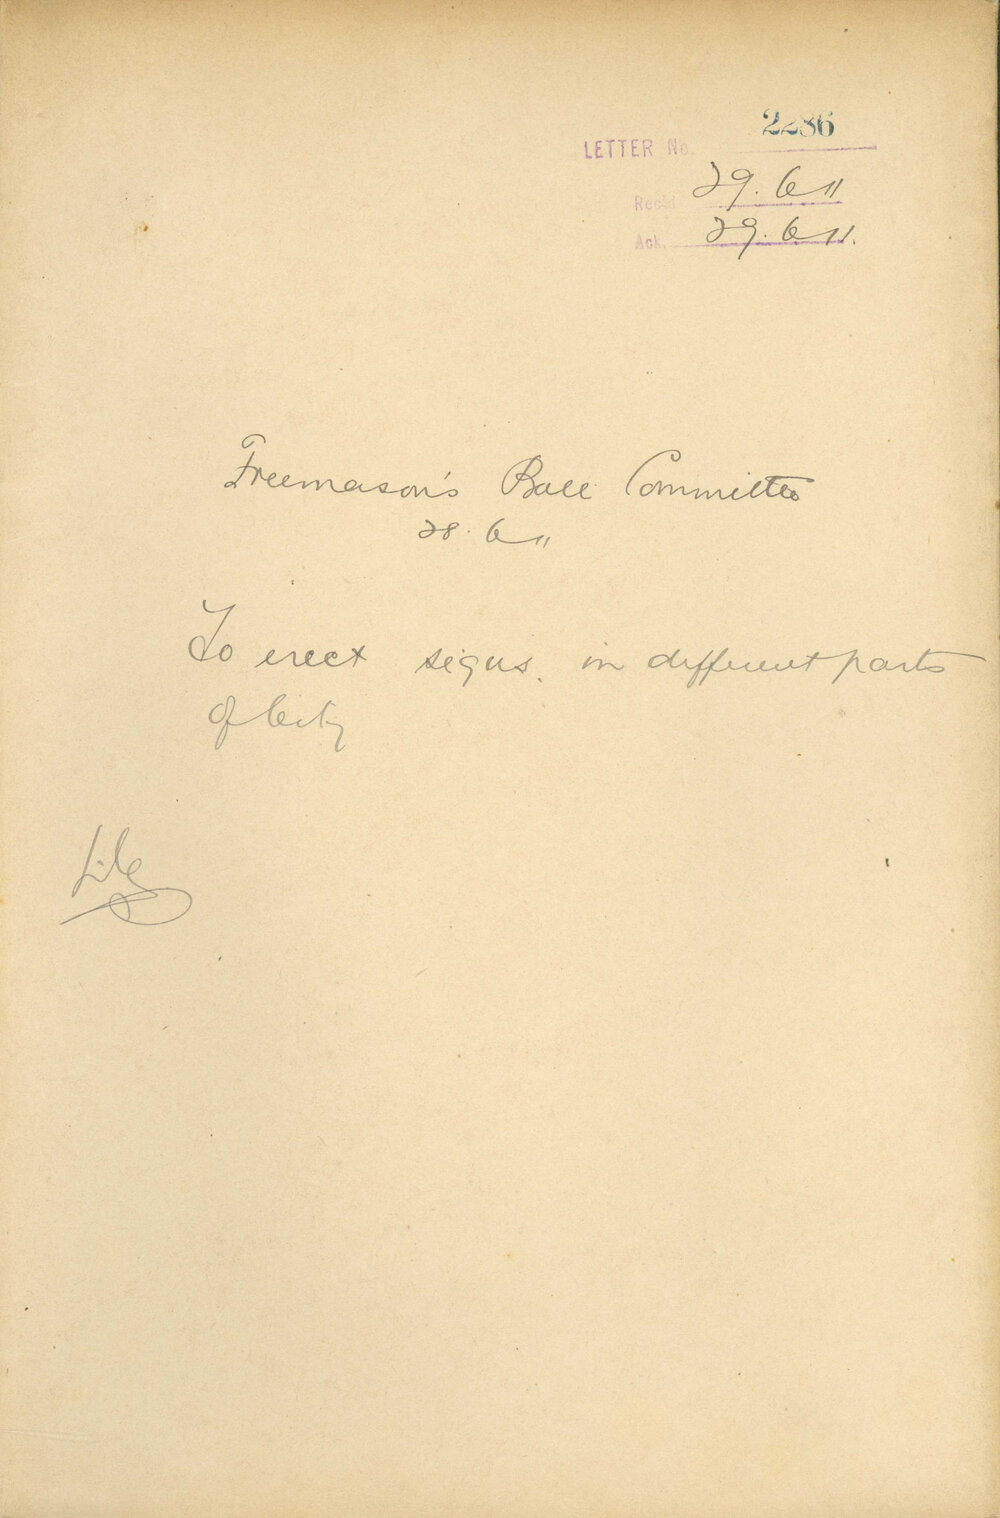 LETTER No. 2286
Rec'd 29.6.11
Ack. 29.6.11.
Freemason's Ball Committee
28.6.11
To erect signs. in different parts
of City
File